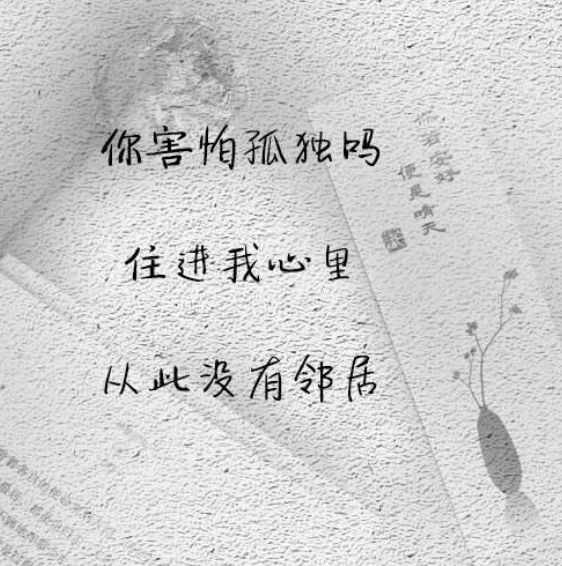 你害怕孤独吗
住进我心里
从此没有邻居
你若安好
便是晴天